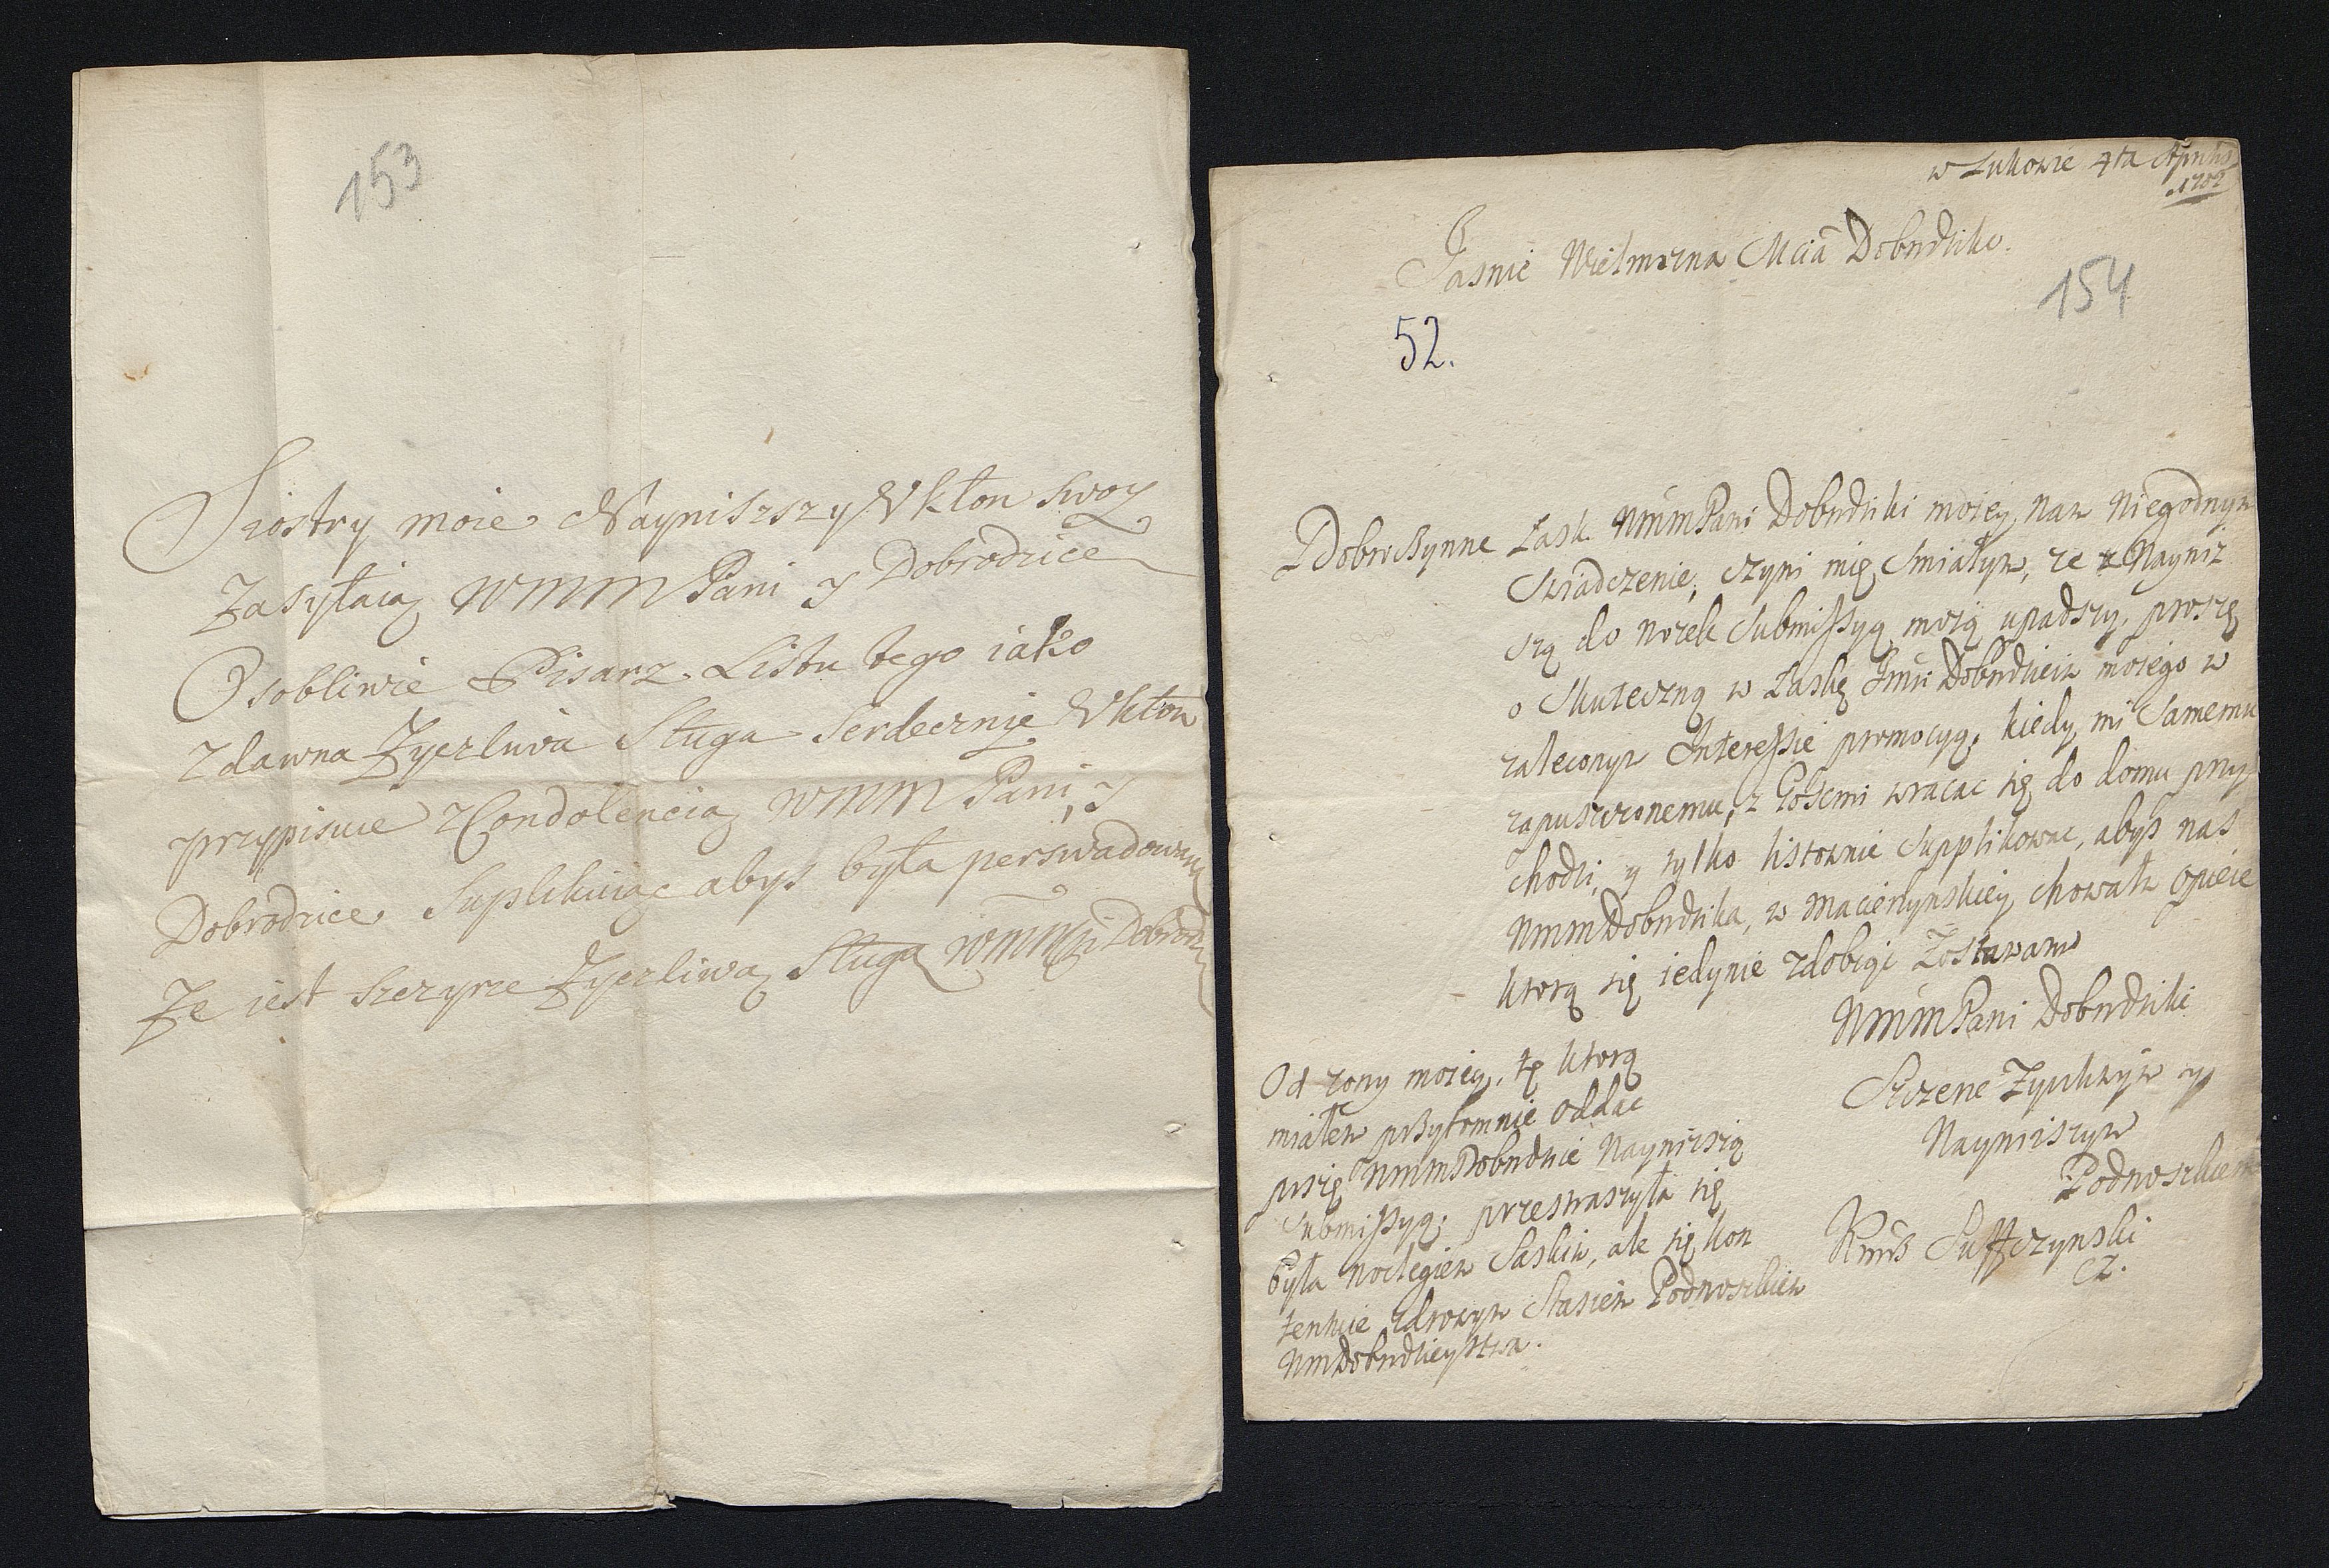 153
Siostry moie Nayniższy Vkłon swoy
Zasyłaią WMM Pani y Dobrodzice
Osobliwie Pisarz Listu tego iako
zdawna Zyczliwa Sługa serdecznie Vkłon
przypisuie z Condolencią WMM Pani, y
Dobrodzice Suplikuiąc abys była perswadowaną
Ze iest szczyrze Zyczliwą Sługą WMMPani Dobrodz
w Łukowie 4ta Aprilis
Jasnie Wielmozna Mcia Dobrdziko.
154
52.
Dobroczynne Łask WMMPani Dobrdziki moiey, nam niegodnym
swiadczenie, czyni mię smiałym, ze z Nayniż
szą do nozek submissyą moią upadszy, proszę
o skuteczną w Łaskę Jmci Dobrdzieia moiego w
zaleconym Interessie promocyą, kiedy mi samemu
zapuszczonemu, z Gosćmi wracac się do domu przy
chodzi, y tylko listownie supplikowac, abyś nas
WMMDobrdzika, w Macierzynskiey chowała opiece
ktorą się iedynie zdobiąc Zostawam
WMMPani Dobrdziki
Szczerze Zyczliwym y
Nayniższym
Podnoszkiem
Suffczynski
Cz.
Od zony moiey, tę ktorą
miałem przytomnie oddac
niosę WMMDobrdzice Nayniższą
submissyą, przestraszyła się
była noclegiem Saskim, ale się kon
tentuie zdrowym Stasiem Podnoszkiem
WMDobrdzieystwa.